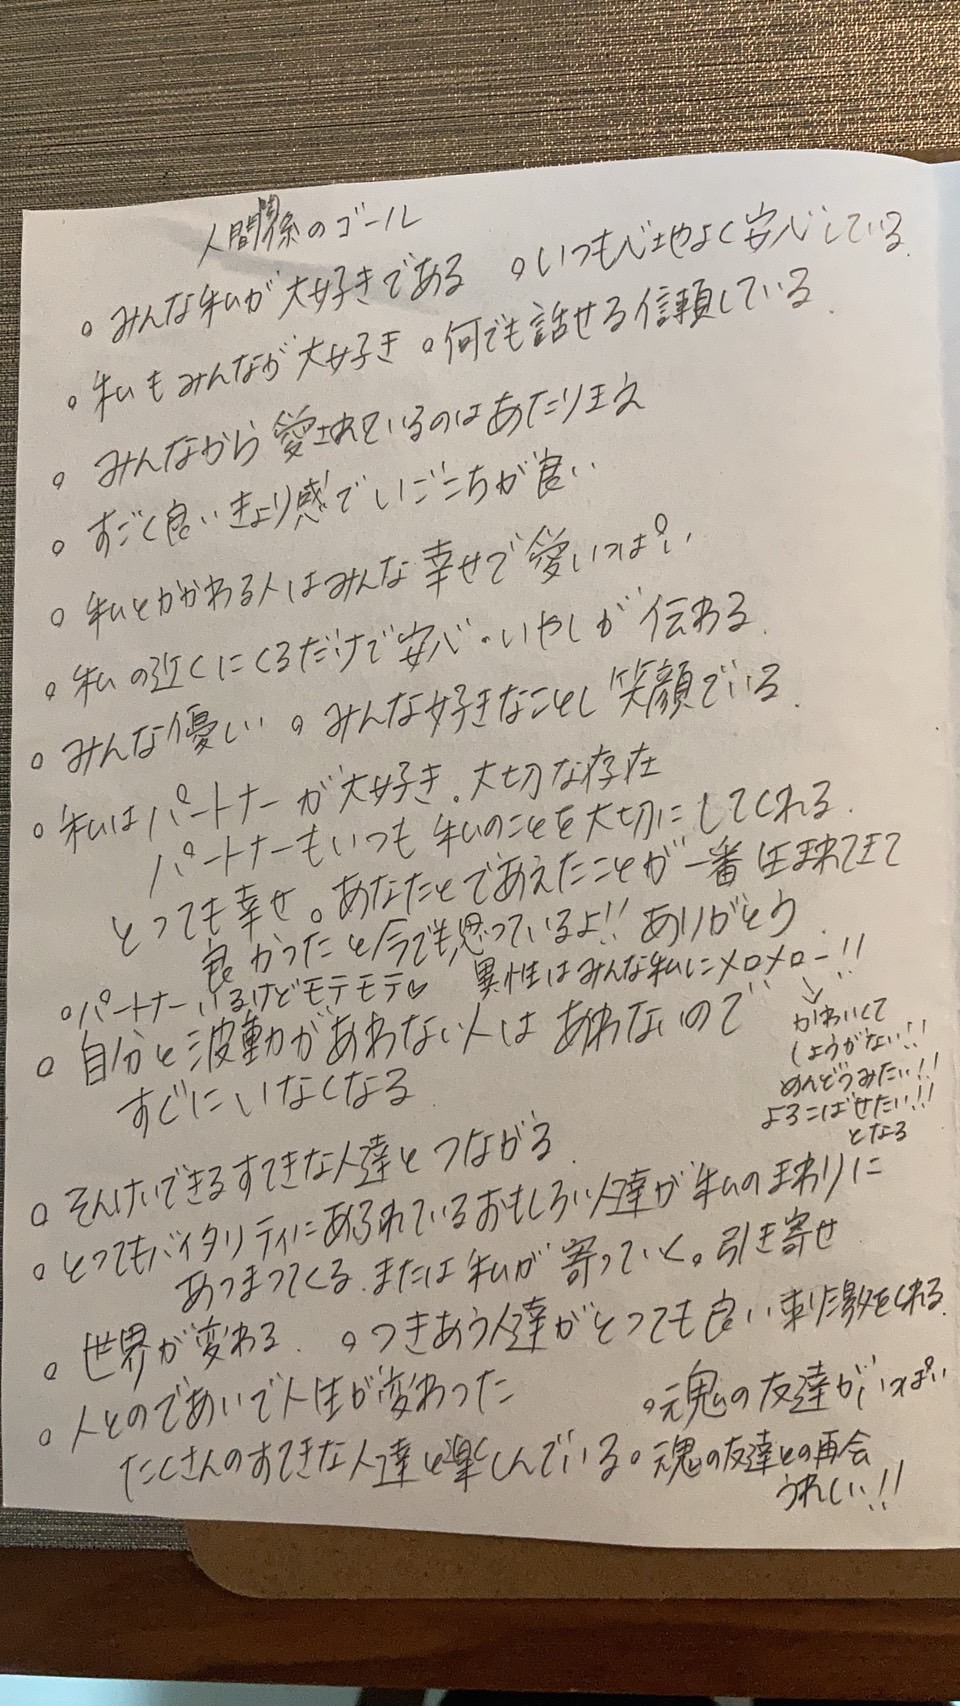 人間関係のゴール
○みんな私が大好きである ○いつも心地よく安心している
○私もみんなが大好き ○何でも話せる信頼している。
○みんなから愛されているのはあたりまえ
○すごく良いきょり感でいごこちが良い
○私とかかわる人はみんな幸せで愛いっぱい
○私の近くにくるだけで安心・いやしが伝わる。
○みんな優しい ○みんな好きなことし笑顔でいる。
○私はパートナーが大好き。大切な存在
パートナーもいつも私のことを大切にしてくれる。
とっても幸せ。あなたとであえたことが一番生まれてきて
良かったと今でも思っているよ!! ありがとう
○パートナーいるけどモテモテ♡ 異性はみんな私にメロメロー!!
↓
かわいくて
しょうがない!!
めんどうみたい!!
よろこばせたい!!
となる
○自分と波動があわない人はあわないので
すぐにいなくなる
○そんけいできるすてきな人達とつながる
○とってもバイタリティにあふれているおもしろい人達が私のまわりに
あつまってくる。または私が寄っていく。引き寄せ
○世界が変わる。 ○つきあう人達がとっても良い刺激をくれる。
○人とのであいで人生が変わった
○魂の友達がいっぱい
たくさんのすてきな人達と楽しんでいる。○魂の友達との再会
うれしい!!